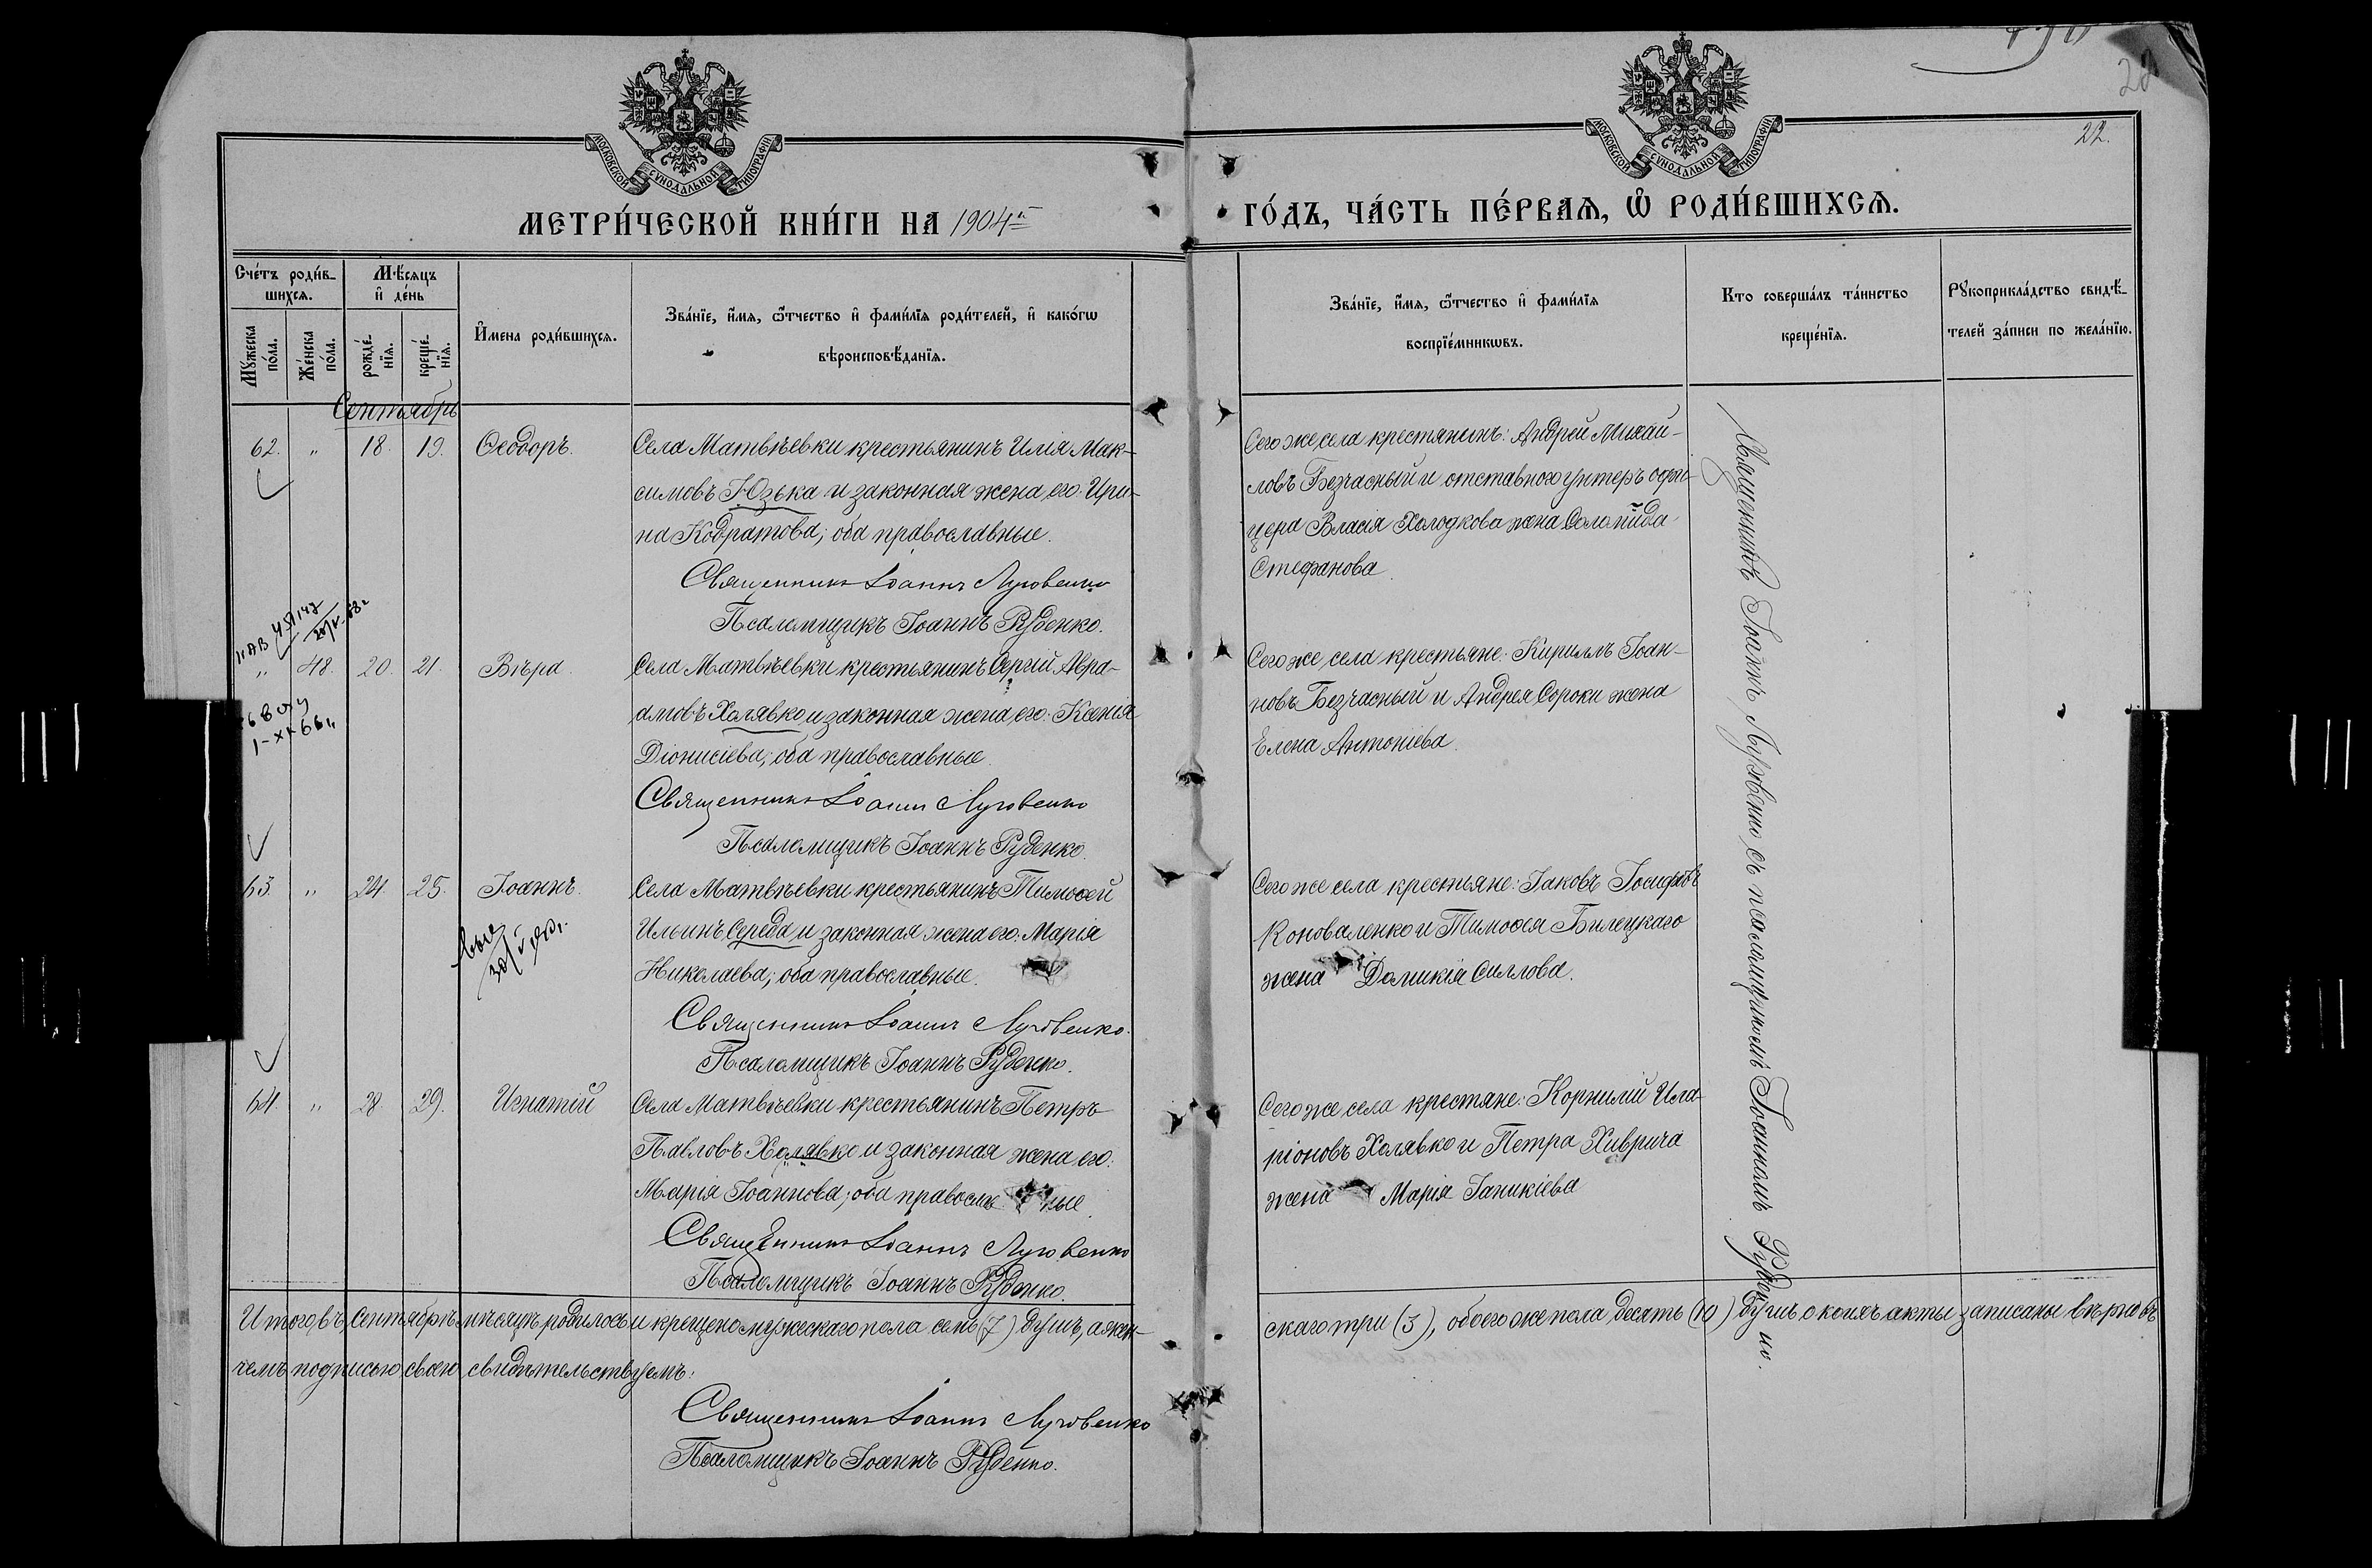 22.
МОСКОВСКОЙ СУНОДАЛЬНОЙ ТИПОГРАФІИ
МОСКОВСКОЙ СУНОДАЛЬНОЙ ТИПОГРАФІИ
МЕТРИ́ЧЕСКОЙ КНИ́ГИ НА 1904й
ГО́ДЪ, ЧА́СТЬ ПЕ́РВАѦ, Ѡ҆ РОДИ́ВШИХСѦ.
Сче́тъ роди́в-
шихсѧ.
Мꙋжеска по́ла.
Же́нска по́ла.
Мѣ́сѧцъ
и҆ де́нь
рожде́-
нїѧ.
креще́-
нїѧ.
И҆мена роди́вшихсѧ.
Зва́нїе, и҆́мѧ, ѻ҆́тчество и҆ фами́лїѧ роди́телей, и҆ како́гѡ
вѣроисповѣ́данїѧ.
Зва́нїе, и҆́мѧ, ѻ҆́тчество и҆ фами́лїѧ
воспрїе́мникѡвъ.
Кто соверша́лъ та́инство
креще́нїѧ.
Рꙋкоприкла́дство свидѣ́-
телей за́писи по жела́нїю.
Сентябрь
62. " 18. 19. Ѳеодоръ.
Села Матвѣевки крестьянинъ Илія Мак-
симовъ Юзька и законная жена его: Ири-
на Кодратова; оба православные.
Священникъ Іоаннъ Луговенко
Псаломщикъ Іоаннъ Руденко.
Сего же села крестянинъ: Андрей Михаи-
ловъ Безчасный и отставного унтеръ офи-
цера Власія Холодкова жена Соломида
Стефанова
" 48. 20. 21. Вѣра.
Села Матвѣевки крестьянинъ Сергій Авра-
амовъ Халявко и законная жена его: Ксенія
Діонисіева; оба православные.
Священникъ Іоаннъ Луговенко
Псаломщикъ Іоаннъ Руденко.
Сего же села крестьяне: Кириллъ Іоан-
новъ Безчасный и Андрея Сороки жена
Елена Антоніева.
63. " 24. 25. Іоаннъ.
Села Матвѣевки крестьянинъ Тимоѳей
Ильинъ Середа и законная жена его: Марія
Николаева; оба православные.
Священникъ Іоаннъ Луговенко.
Псаломщикъ Іоаннъ Руденко.
Сего же села крестьяне: Іаковъ Іосифовъ
Коноваленко и Тимоѳея Билецкаго
жена Домникія Силлова.
64. " 28. 29. Игнатій
Села Матвѣевки крестьянинъ Петръ
Павловъ Халявко и законная жена его:
Марія Іоаннова; оба православные.
Священникъ Іоаннъ Луговенко
Псаломщикъ Іоаннъ Руденко.
Сего же села крестяне: Корнилій Ила-
ріоновъ Халявко и Петра Хиврича
жена Марія Іаникіева
Священникъ Іоаннъ Луговенко съ псаломщикомъ Іоанномъ Руденко.
Итого въ Сентябрѣ мѣсяцѣ родилось и крещено мужескаго пола семь (7) душъ, а жен-
скаго три (3), обоего же пола десять (10) душъ о коихъ акты записаны вѣрно въ
чемъ подписью своею свидѣтельствуемъ:
Священникъ Іоаннъ Луговенко
Псаломщикъ Іоаннъ Руденко.